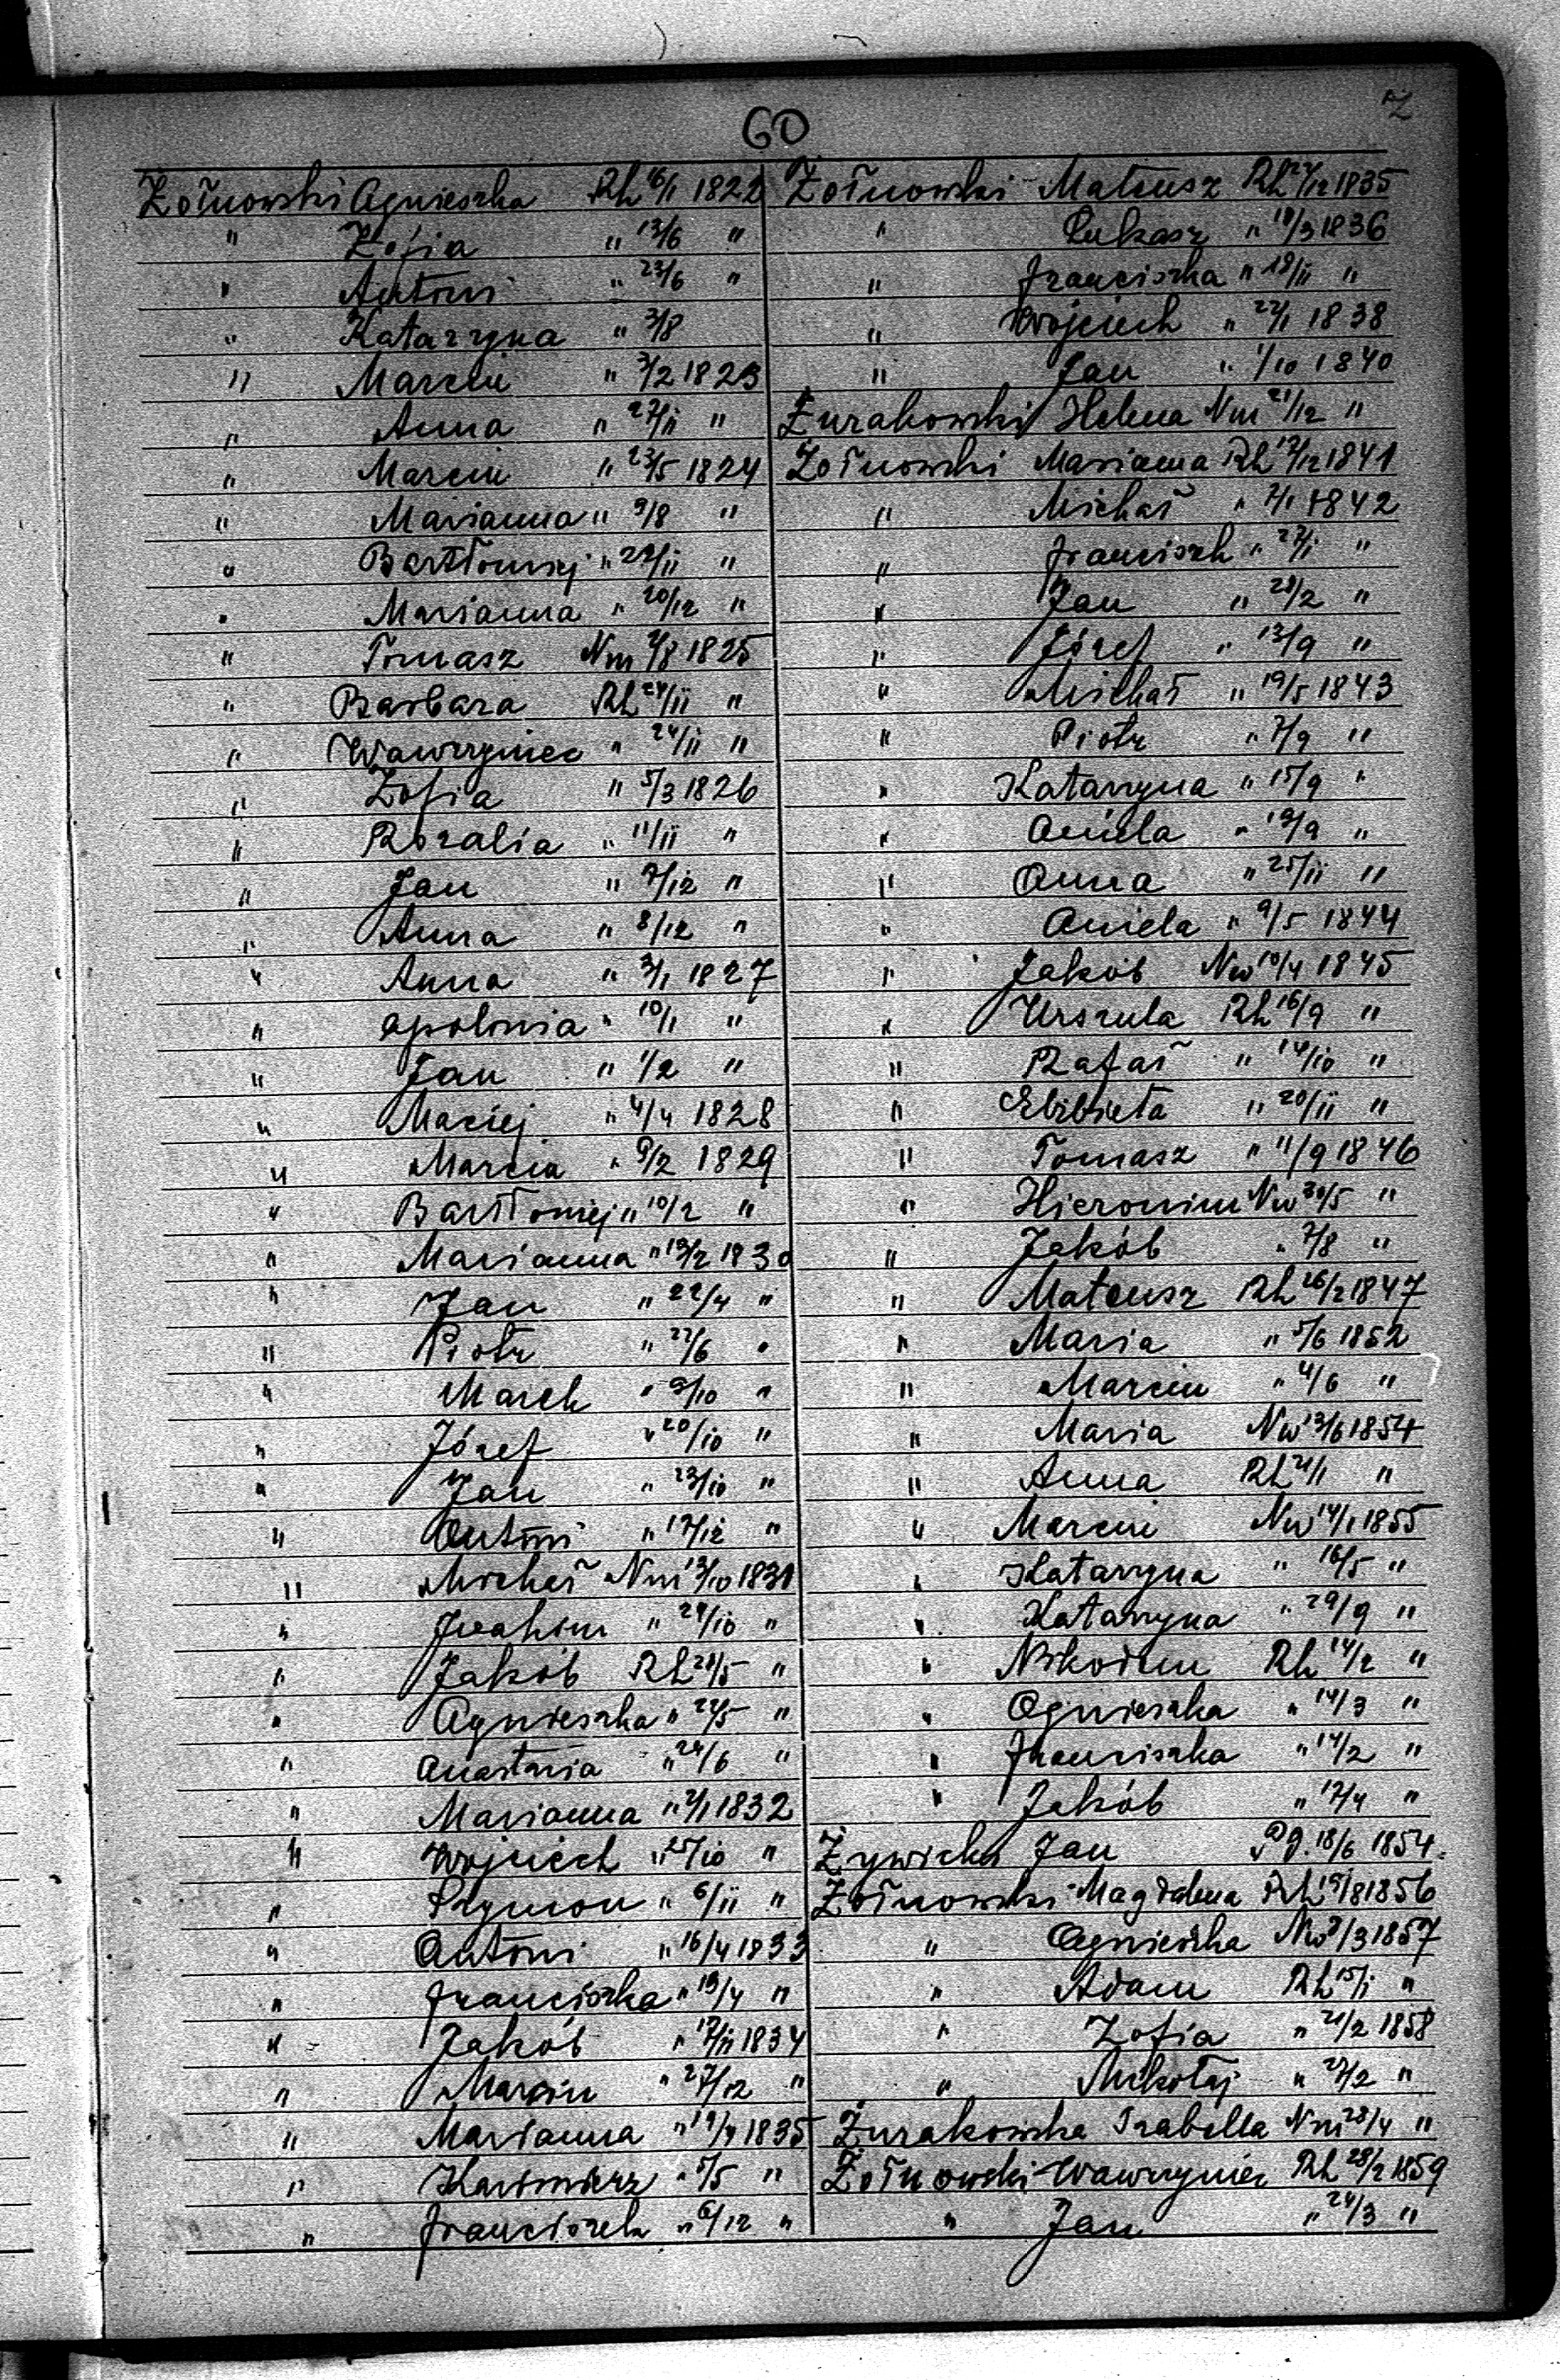 Z
60
Żołnowski Agnieszka Rh 16/1 1822
" Zofia " 13/6 "
" Antoni " 23/6 "
" Katarzyna " 3/8
" Marcin " 3/2 1823
" Anna " 27/11 "
" Marcin " 23/5 1824
" Marianna " 9/8 "
" Barttłomiej " 24/11 "
" Marianna " 20/12 "
" Tomasz Nm 4/8 1825
" Barbara Rh 24/11 "
" Wawrzyniec " 24/11 "
" Zofia " 5/3 1826
" Rozalia " 11/11 "
" Jan " 7/12 "
" Anna " 8/12 "
" Anna " 3/1 1827
" Apolonia " 10/1 "
" Jan " 1/2 "
" Maciej " 4/4 1828
" Marcin " 9/2 1829
" Bartłomiej " 10/2 "
" Marianna " 19/2 1830
" Jan " 22/4 "
" Piotr " 22/6 "
" Marek " 9/10 "
" Józef " 20/10 "
" Jan " 23/10 "
" Antoni " 17/12 "
" Michał Nm 13/10 1831
" Joahim " 24/10 "
" Jakób Rh 21/5 "
" Agnieszka " 22/5 "
" Anastasia " 24/6 "
" Marianna " 2/1 1832
" Wojciech " 15/10 "
" Szymon " 6/11 "
" Antoni " 16/4 1833
" Franciszka " 19/4 "
" Jakób " 17/11 1834
" Marcin " 27/12 "
" Marianna " 19/4 1835
" Kazimierz " 5/5 "
" Franciszek " 6/12 "
Żołnowski Mateusz Rh 27/12 1835
" Łukasz " 18/3 1836
" Franciszka " 18/11 "
" Wojciech " 22/1 1838
" Jan " 1/10 1840
Żurakowski Helena Nm 21/12 "
Żołnowski Marianna Rh 12/12 1841
" Michał " 7/1 1842
" Franciszk " 27/1 "
" Jan " 28/2 "
" Józef " 13/9 "
" Michał " 19/5 1843
" Piotr " 7/9 "
" Katarzyna " 15/9 "
" Aniela " 19/9 "
" Anna " 25/11 "
" Aniela " 9/5 1844
" Jakób Nw 10/4 1845
" Urszula Rh 16/9 "
" Rafał " 14/10 "
" Elżbieta " 20/11 "
" Tomasz " 11/9 1846
" Hieronim Nw 30/5 "
" Jakób " 7/8 "
" Mateusz Rh 26/2 1847
" Maria " 5/6 1852
" Marcin " 4/6 "
" Maria Nw 13/6 1854
" Anna Rh 21/1 "
" Marcin Nw 14/1 1855
" Katarzyna " 16/5 "
" Katarzyna " 29/9 "
" Nikodem Rh 14/2 "
" Agnieszka " 14/3 "
" Franciszka " 14/2 "
" Jakób " 17/4 "
Żywicki Jan Pg. 18/6 1854.
Żołnowski Magdalena Rh 19/8 1856
" Agnieszka Nw 3/3 1857
" Adam Rh 15/1 "
" Zofia " 21/2 1858
" Mikołaj " 27/2 "
Żurakowska Izabella Nm 28/4 "
Żołnowski Wawrzyniec Rh 28/2 1859
" Jan " 24/3 "